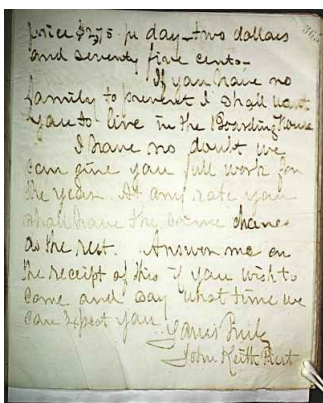 price $2.75 pr day - two dollars
and seventy five cents -
If you have no
family to prevent I shall want
you to live in the Boarding House
I have no doubt we
can give you full work for
the year. At any rate you
shall have the same chance
as the rest. Answer me on
the receipt of this if you wish to
come and say what time we
can expect you.
Yours Truly
John Keith